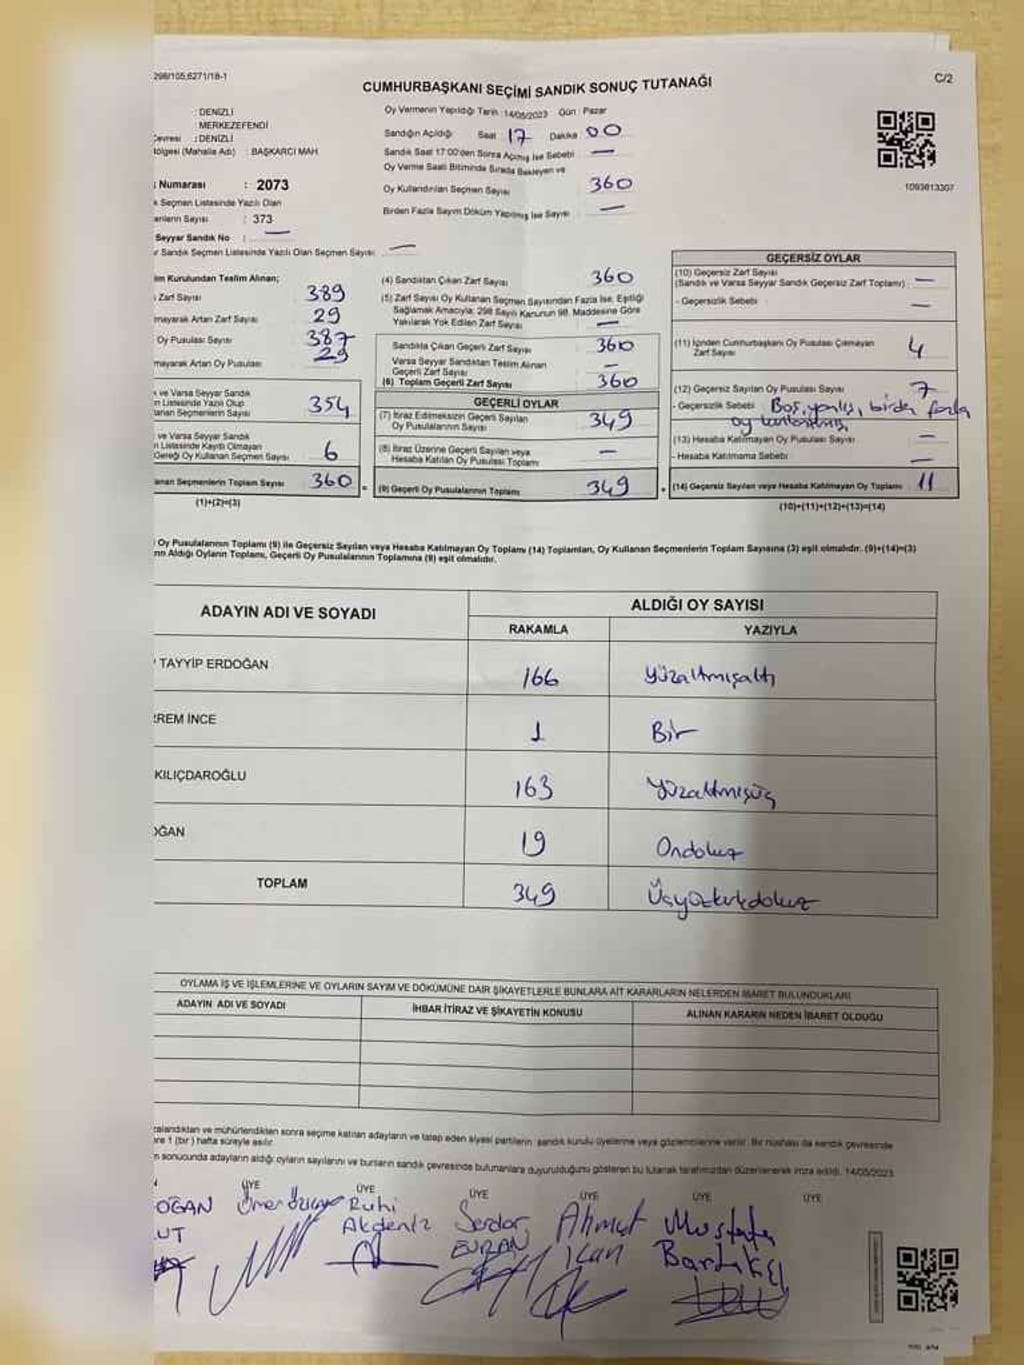 298/105,6271/18-1
C/2
CUMHURBAŞKANI SEÇİMİ SANDIK SONUÇ TUTANAĞI
: DENİZLİ
: MERKEZEFENDİ
Çevresi : DENİZLİ
ölgesi (Mahalle Adı) : BAŞKARCI MAH.
Numarası : 2073
k Seçmen Listesinde Yazılı Olan
enlerin Sayısı : 373
Seyyar Sandık No : —
r Sandık Seçmen Listesinde Yazılı Olan Seçmen Sayısı : —
Oy Vermenin Yapıldığı Tarih : 14/05/2023 Gün : Pazar
Sandığın Açıldığı Saat : 17 Dakika : 00
Sandık Saat 17:00'den Sonra Açılmış İse Sebebi : —
Oy Verme Saati Bitiminde Sırada Bekleyen ve
Oy Kullandırılan Seçmen Sayısı : 360
Birden Fazla Sayım Döküm Yapılmış İse Sayısı : —
1093813307
im Kurulundan Teslim Alınan;
Zarf Sayısı 389
mayarak Artan Zarf Sayısı 29
Oy Pusulası Sayısı 387
mayarak Artan Oy Pusulası 29
k ve Varsa Seyyar Sandık
n Listesinde Yazılı Olup
lanan Seçmenlerin Sayısı 354
ve Varsa Seyyar Sandık
n Listesinde Kayıtlı Olmayan
Gereği Oy Kullanan Seçmen Sayısı 6
anan Seçmenlerin Toplam Sayısı 360
(1)+(2)=(3)
(4) Sandıktan Çıkan Zarf Sayısı 360
(5) Zarf Sayısı Oy Kullanan Seçmen Sayısından Fazla İse, Eşitliği
Sağlamak Amacıyla; 298 Sayılı Kanunun 98. Maddesine Göre
Yakılarak Yok Edilen Zarf Sayısı —
Sandıkta Çıkan Geçerli Zarf Sayısı 360
Varsa Seyyar Sandıktan Teslim Alınan
Geçerli Zarf Sayısı —
(6) Toplam Geçerli Zarf Sayısı 360
GEÇERLİ OYLAR
(7) İtiraz Edilmeksizin Geçerli Sayılan
Oy Pusulalarının Sayısı 349
(8) İtiraz Üzerine Geçerli Sayılan veya
Hesaba Katılan Oy Pusulası Toplamı —
(9) Geçerli Oy Pusulalarının Toplamı 349
GEÇERSİZ OYLAR
(10) Geçersiz Zarf Sayısı
(Sandık ve Varsa Seyyar Sandık Geçersiz Zarf Toplamı) : —
- Geçersizlik Sebebi : —
(11) İçinden Cumhurbaşkanı Oy Pusulası Çıkmayan
Zarf Sayısı 4
(12) Geçersiz Sayılan Oy Pusulası Sayısı 7
- Geçersizlik Sebebi Boş, yanlış, birden fazla
oy kullanılmış
(13) Hesaba Katılmayan Oy Pusulası Sayısı —
- Hesaba Katılmama Sebebi : —
(14) Geçersiz Sayılan veya Hesaba Katılmayan Oy Toplamı 11
(10)+(11)+(12)+(13)=(14)
Oy Pusulalarının Toplamı (9) ile Geçersiz Sayılan veya Hesaba Katılmayan Oy Toplamı (14) Toplamları, Oy Kullanan Seçmenlerin Toplam Sayısına (3) eşit olmalıdır. (9)+(14)=(3)
rın Aldığı Oyların Toplamı, Geçerli Oy Pusulalarının Toplamına (9) eşit olmalıdır.
ADAYIN ADI VE SOYADI
ALDIĞI OY SAYISI
RAKAMLA YAZIYLA
TAYYİP ERDOĞAN 166 Yüzaltmışaltı
REM İNCE 1 Bir
KILIÇDAROĞLU 163 Yüzaltmışüç
OĞAN 19 Ondokuz
TOPLAM 349 Üçyüzkırkdokuz
OYLAMA İŞ VE İŞLEMLERİNE VE OYLARIN SAYIM VE DÖKÜMÜNE DAİR ŞİKAYETLERLE BUNLARA AİT KARARLARIN NELERDEN İBARET BULUNDUKLARI
ADAYIN ADI VE SOYADI İHBAR İTİRAZ VE ŞİKAYETİN KONUSU ALINAN KARARIN NEDEN İBARET OLDUĞU
zalandıktan ve mühürlendikten sonra seçime katılan adayların ve talep eden siyasi partilerin sandık kurulu üyelerine veya gözlemcilerine verilir. Bir nüshası da sandık çevresinde
re 1 (bir) hafta süreyle asılır.
n sonucunda adayların aldığı oyların sayılarını ve bunların sandık çevresinde bulunanlara duyurulduğunu gösteren bu tutanak tarafımızdan düzenlenerek imza edildi. 14/05/2023
ÜYE ÜYE ÜYE ÜYE ÜYE ÜYE
OĞAN Ruhi Serdar Ahmet Mustafa
UT Akdeniz